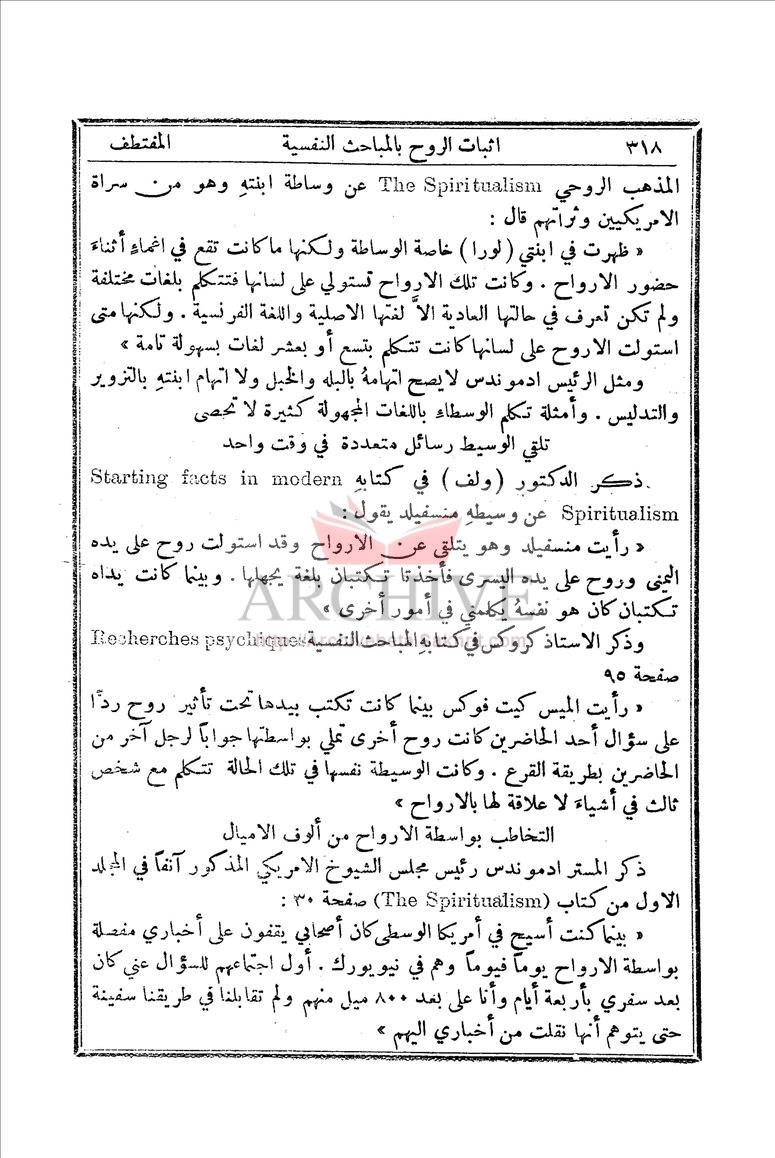 ٣١٨ اثبات الروح بالمباحث النفسية المقتطف
المذهب الروحي The Spiritualism عن وساطة ابنتهِ وهو من سراة
الامريكيين وثراتهم قال :
« ظهرت في ابنتي (لورا) خاصة الوساطة ولكنها ما كانت تقع في اغماءٍ أثناءَ
حضور الارواح . وكانت تلك الارواح تستولي على لسانها فتتكلم بلغات مختلفة
ولم تكن تعرف في حالتها العادية الاَّ لغتها الاصلية واللغة الفرنسية . ولكنها متى
استولت الاروح على لسانها كانت تتكلم بتسع أو بعشر لغات بسهولة تامة »
ومثل الرئيس ادموندس لا يصح اتهامهُ بالبله والخبل ولا اتهام ابنتهِ بالتزوير
والتدليس . وأمثلة تكلم الوسطاءِ باللغات المجهولة كثيرة لا تحصى
تلقي الوسيط رسائل متعددة في وقت واحد
ذكر الدكتور (ولف) في كتابهِ Starting facts in modern
Spiritualism عن وسيطهِ منسفيلد يقول :
« رأيت منسفيلد وهو يتلقى عن الارواح وقد استولت روح على يده
اليمنى وروح على يده اليسرى فأخذتا تكتبان بلغة يجهلها . وبينما كانت يداه
تكتبان كان هو نفسهُ يكلمني في أمور أخرى »
وذكر الاستاذ كروكس في كتابهِ المباحث النفسية Recherches psychiques
صفحة ٩٥
« رأيت الميس كيت فوكس بينما كانت تكتب بيدها تحت تأثير روح ردًّا
على سؤال أحد الحاضرين كانت روح أخرى تملي بواسطتها جواباً لرجل آخر من
الحاضرين بطريقة القرع . وكانت الوسيطة نفسها في تلك الحالة تتكلم مع شخص
ثالث في أشياءَ لا علاقة لها بالارواح »
التخاطب بواسطة الارواح من ألوف الاميال
ذكر المستر ادموندس رئيس مجلس الشيوخ الامريكي المذكور آنفاً في المجلد
الاول من كتاب (The Spiritualism) صفحة ٣٠ :
« بينما كنت أسيح في أمريكا الوسطى كان أصحابي يقفون على أخباري مفصلة
بواسطة الارواح يوماً فيوماً وهم في نيويورك . أول اجتماعهم للسؤال عني كان
بعد سفري بأربعة أيام وأنا على بعد ٨٠٠ ميل منهم ولم تقابلنا في طريقنا سفينة
حتى يتوهم أنها نقلت من أخباري اليهم »
ARCHIVE